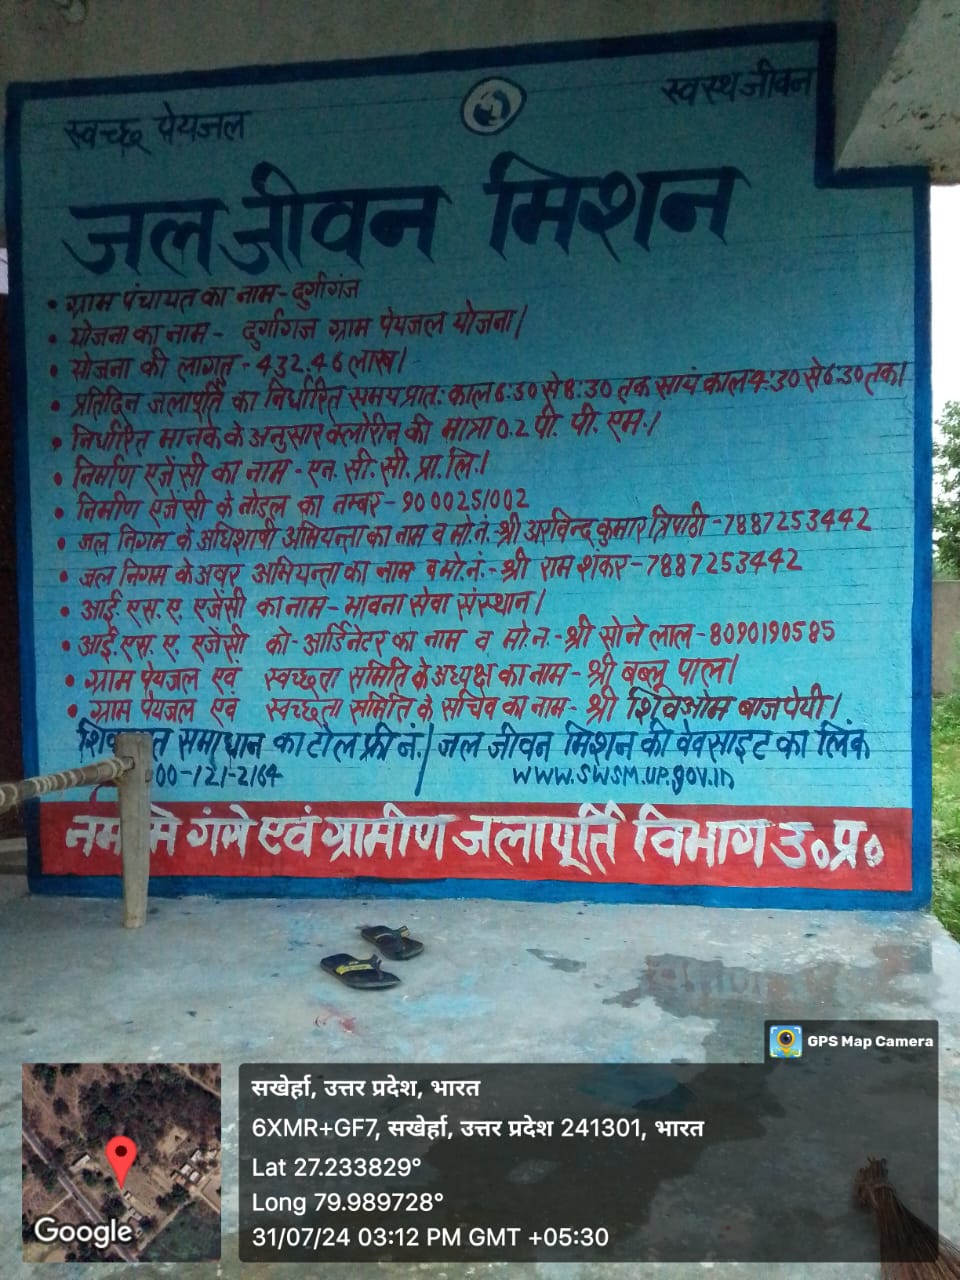 स्वच्छ पेयजल
स्वस्थ जीवन
जल जीवन मिशन
• ग्राम पंचायत का नाम - दुर्गागंज
• योजना का नाम - दुर्गागंज ग्राम पेयजल योजना।
• योजना की लागत - 432.46 लाख।
• प्रतिदिन जलापूर्ति का निर्धारित समय प्रातः काल 6:30 से 8:30 तक सायं काल 4:30 से 6:30 तक।
• निर्धारित मानक के अनुसार क्लोरीन की मात्रा 0.2 पी. पी. एम.।
• निर्माण एजेंसी का नाम - एन. सी. सी. प्रा. लि.।
• निर्माण एजेंसी के नोडल का नम्बर - 9000251002
• जल निगम के अधिशाषी अभियन्ता का नाम व मो.नं. - श्री अरविन्द कुमार त्रिपाठी - 7887253442
• जल निगम के अवर अभियन्ता का नाम व मो.नं. - श्री राम शंकर - 7887253442
• आई. एस. ए. एजेंसी का नाम - भावना सेवा संस्थान।
• आई. एस. ए. एजेंसी को-आर्डिनेटर का नाम व मो.न. - श्री सोने लाल - 8090190585
• ग्राम पेयजल एवं स्वच्छता समिति के अध्यक्ष का नाम - श्री बब्लू पाल।
• ग्राम पेयजल एवं स्वच्छता समिति के सचिव का नाम - श्री शिवओम बाजपेयी।
समाधान का टोल फ्री नं. / जल जीवन मिशन की वेवसाइट का लिंक
00-121-2164 www.swsm.up.gov.in
गंगे एवं ग्रामीण जलापूर्ति विभाग उ०प्र०
GPS Map Camera
सखेर्हा, उत्तर प्रदेश, भारत
6XMR+GF7, सखेर्हा, उत्तर प्रदेश 241301, भारत
Lat 27.233829°
Long 79.989728°
31/07/24 03:12 PM GMT +05:30
Google